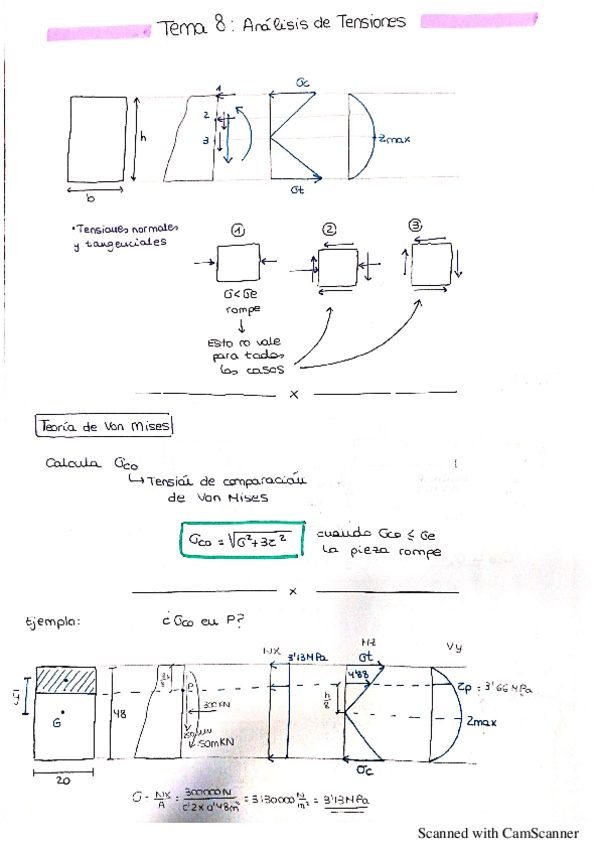 Tema 8: Análisis de Tensiones
σc
1
2
3
h
τmax
b
σt
• Tensiones normales
y tangenciales
① ② ③
σ<σe
rompe
Esto no vale
para todos
los casos
x
Teoría de Von Mises
Calcula σco
Tensión de comparación
de Von Mises
σco = √σ²+3τ²
cuando σco ≤ σe
la pieza rompe
x
Ejemplo:
¿σco en P?
Nx
3'13MPa
Mz
σt
Vy
4'88
P
τp = 3'66 MPa
300KN
h/8
ȳ
G
48
τmax
150mKN
20
σc
σ = Nx/A = 300000N/0'2x0'48m² = 3130000 N/m² = 3'13MPa
Scanned with CamScanner